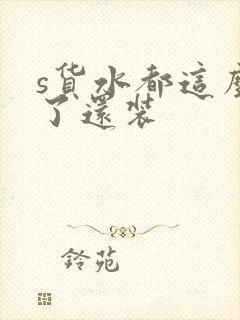 s货水都這麼
了還裝
鈴苑